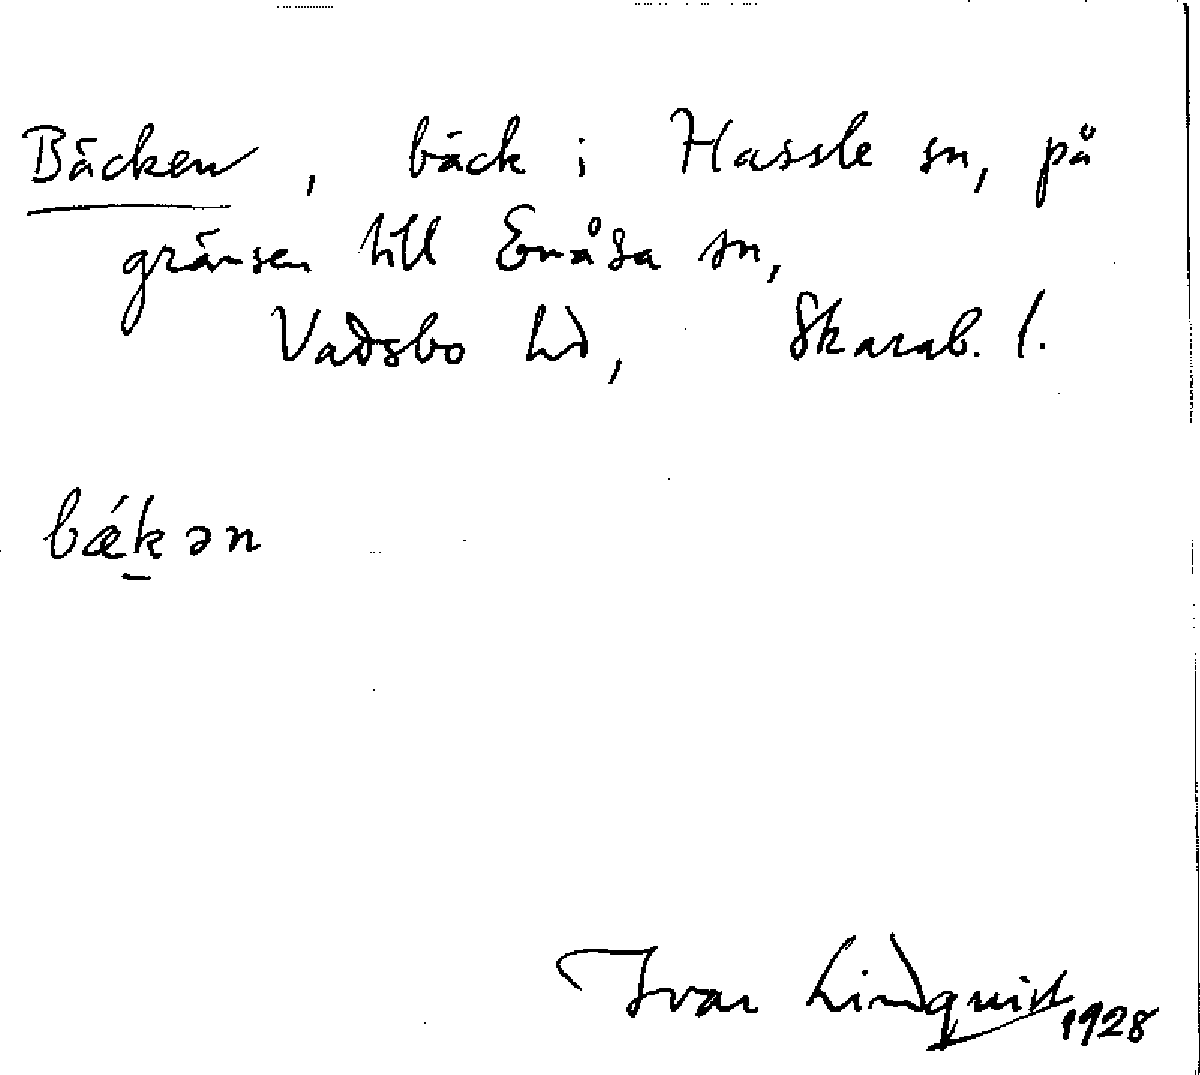 Bäcken, bäck i Hassle sn, på
gränsen till Enåsa sn,
Vadsbo hd, Skarab. l.
bǽk̠ən
Ivar Lindquist 1928